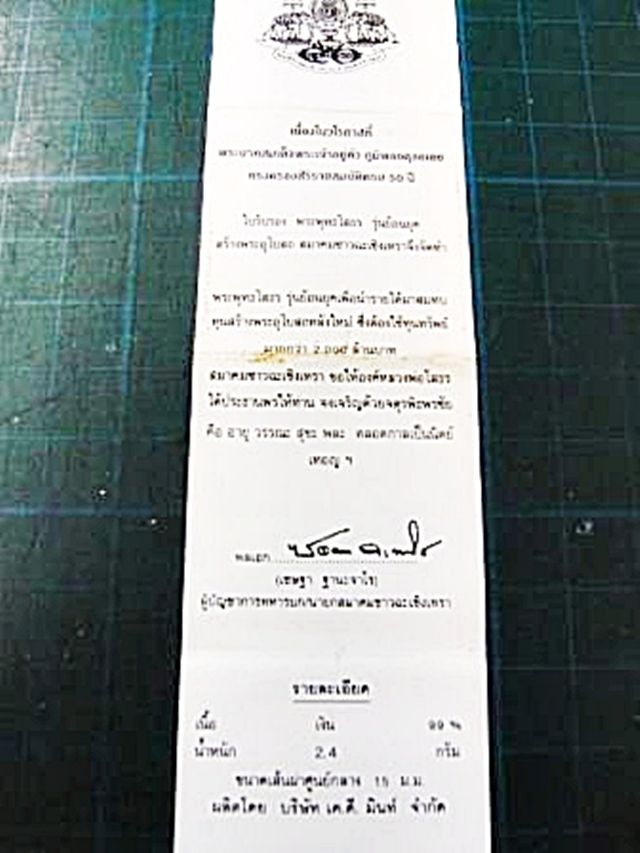 เนื่องในวโรกาสที่
พระบาทสมเด็จพระเจ้าอยู่หัว ภูมิพลอดุลยเดช
ทรงครองสิริราชสมบัติครบ 50 ปี
ใบรับรอง พระพุทธโสธร รุ่นย้อนยุค
สร้างพระอุโบสถ สมาคมชาวฉะเชิงเทราจึงจัดทำ
พระพุทธโสธร รุ่นย้อนยุคเพื่อนำรายได้มาสมทบ
ทุนสร้างพระอุโบสถหลังใหม่ ซึ่งต้องใช้ทุนทรัพย์
มากกว่า 2,000 ล้านบาท
สมาคมชาวฉะเชิงเทรา ขอให้องค์หลวงพ่อโสธร
ได้ประธานพรให้ท่าน จงเจริญด้วยจตุรพิธพรชัย
คือ อายุ วรรณะ สุขะ พละ ตลอดกาลเป็นนิตย์
เทอญ ฯ
พลเอก
(เชษฐา ฐานะจาโร)
ผู้บัญชาการทหารบก/นายกสมาคมชาวฉะเชิงเทรา
รายละเอียด
เนื้อ เงิน 99 %
น้ำหนัก 2.4 กรัม
ขนาดเส้นผ่าศูนย์กลาง 15 ม.ม.
ผลิตโดย บริษัท เค.ดี. มินท์ จำกัด